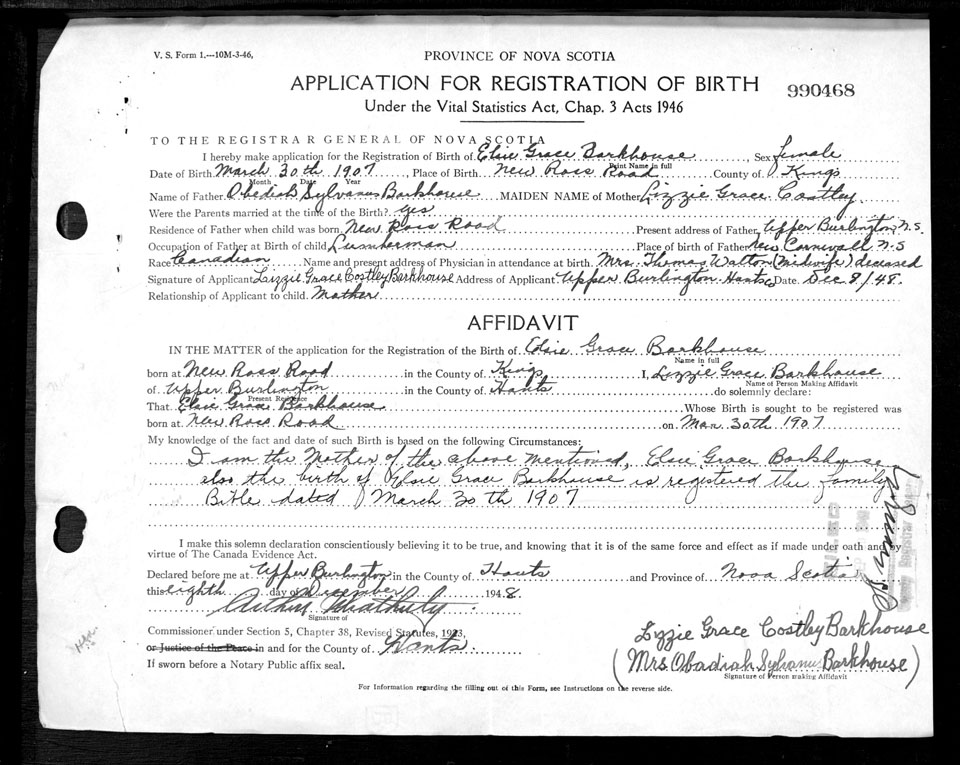 V. S. Form 1.---10M-3-46.
PROVINCE OF NOVA SCOTIA
APPLICATION FOR REGISTRATION OF BIRTH
990468
Under the Vital Statistics Act, Chap. 3 Acts 1946
TO THE REGISTRAR GENERAL OF NOVA SCOTIA
I hereby make application for the Registration of Birth of Elsie Grace Barkhouse Sex female
Print Name in full
Date of Birth March 30th 1907, Place of Birth New Ross Road County of Kings
Month Date Year
Name of Father Obediah Sylvanus Barkhouse MAIDEN NAME of Mother Lizzie Grace Costley
Were the Parents married at the time of the Birth? yes
Residence of Father when child was born New Ross Road Present address of Father Upper Burlington N.S.
Occupation of Father at Birth of child Lumberman Place of birth of Father New Cornwall N.S
Race Canadian Name and present address of Physician in attendance at birth. Mrs. Thomas Walton (Midwife) deceased
Signature of Applicant Lizzie Grace Costley Barkhouse Address of Applicant Upper Burlington Hants Co Date Dec 8/48.
Relationship of Applicant to child. Mother
AFFIDAVIT
IN THE MATTER of the application for the Registration of the Birth of Elsie Grace Barkhouse
Name in full
born at New Ross Road in the County of Kings I, Lizzie Grace Barkhouse
Name of Person Making Affidavit
of Upper Burlington in the County of Hants do solemnly declare:
Present Residence
That Elsie Grace Barkhouse Whose Birth is sought to be registered was
born at New Ross Road on Mar 30th 1907
My knowledge of the fact and date of such Birth is based on the following Circumstances:
I am the Mother of the above mentioned, Elsie Grace Barkhouse
also the birth of Elsie Grace Barkhouse is registered the family
Bible dated March 30th 1907
I make this solemn declaration conscientiously believing it to be true, and knowing that it is of the same force and effect as if made under oath and by
virtue of The Canada Evidence Act.
Declared before me at Upper Burlington in the County of Hants and Province of Nova Scotia
this eighth day of December 1948.
Signature of
Commissioner under Section 5, Chapter 38, Revised Statutes, 1923,
or Justice of the Peace in and for the County of Hants
If sworn before a Notary Public affix seal.
Lizzie Grace Costley Barkhouse
(Mrs. Obadiah Sylvanus Barkhouse)
Signature of Person making Affidavit
For Information regarding the filling out of this Form, see Instructions on the reverse side.